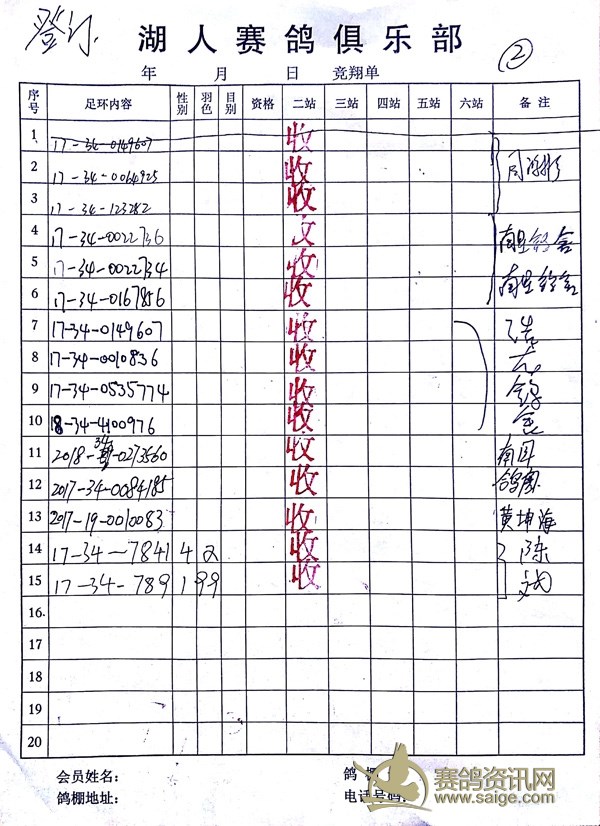 登记
湖人赛鸽俱乐部
②
年 月 日 竞翔单
序号 足环内容 性别 羽色 目别 资格 二站 三站 四站 五站 六站 备注
1 17-34-0149607 收
2 17-34-0064925 收
3 17-34-123282 收
4 17-34-0022736 收 南星鸽舍
5 17-34-0022734 收
6 17-34-0167856 收 南星鸽舍
7 17-34-0149607 收 浩
8 17-34-0010836 收
9 17-34-0535774 收 鸽
10 18-34-4100976 收 舍
11 2018-34-0273560 收
12 2017-34-0084185 收
13 2017-19-0010083 收 黄坤海
14 17-34-7841 4 2 收 陈
15 17-34-789 1 99 收 斌
16.
17
18
19
20
会员姓名: 鸽棚
鸽棚地址: 电话号码:
赛鸽资讯网
www.saige.com